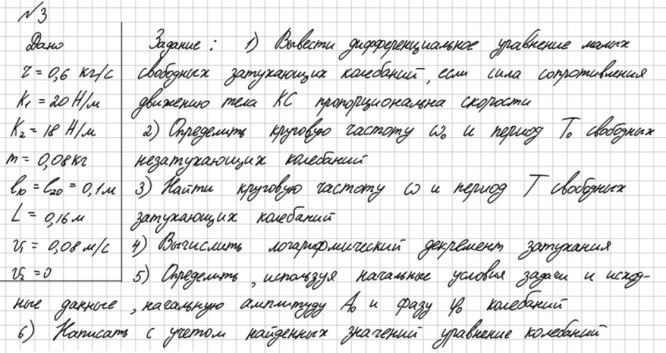 №3
Дано Задание: 1) Вывести дифференциальное уравнение малых
r = 0,6 кг/с свободных затухающих колебаний, если сила сопротивления
K₁ = 20 Н/м движению тела КС пропорциональна скорости
K₂ = 18 Н/м 2) Определить круговую частоту ω₀ и период T₀ свободных
m = 0,08 кг незатухающих колебаний
l₁₀ = l₂₀ = 0,1 м 3) Найти круговую частоту ω и период T свободных
L = 0,16 м затухающих колебаний
v₁ = 0,08 м/с 4) Вычислить логарифмический декремент затухания
v₂ = 0 5) Определить, используя начальные условия задачи и исход-
ные данные, начальную амплитуду A₀ и фазу φ₀ колебаний
6) Написать с учетом найденных значений уравнение колебаний